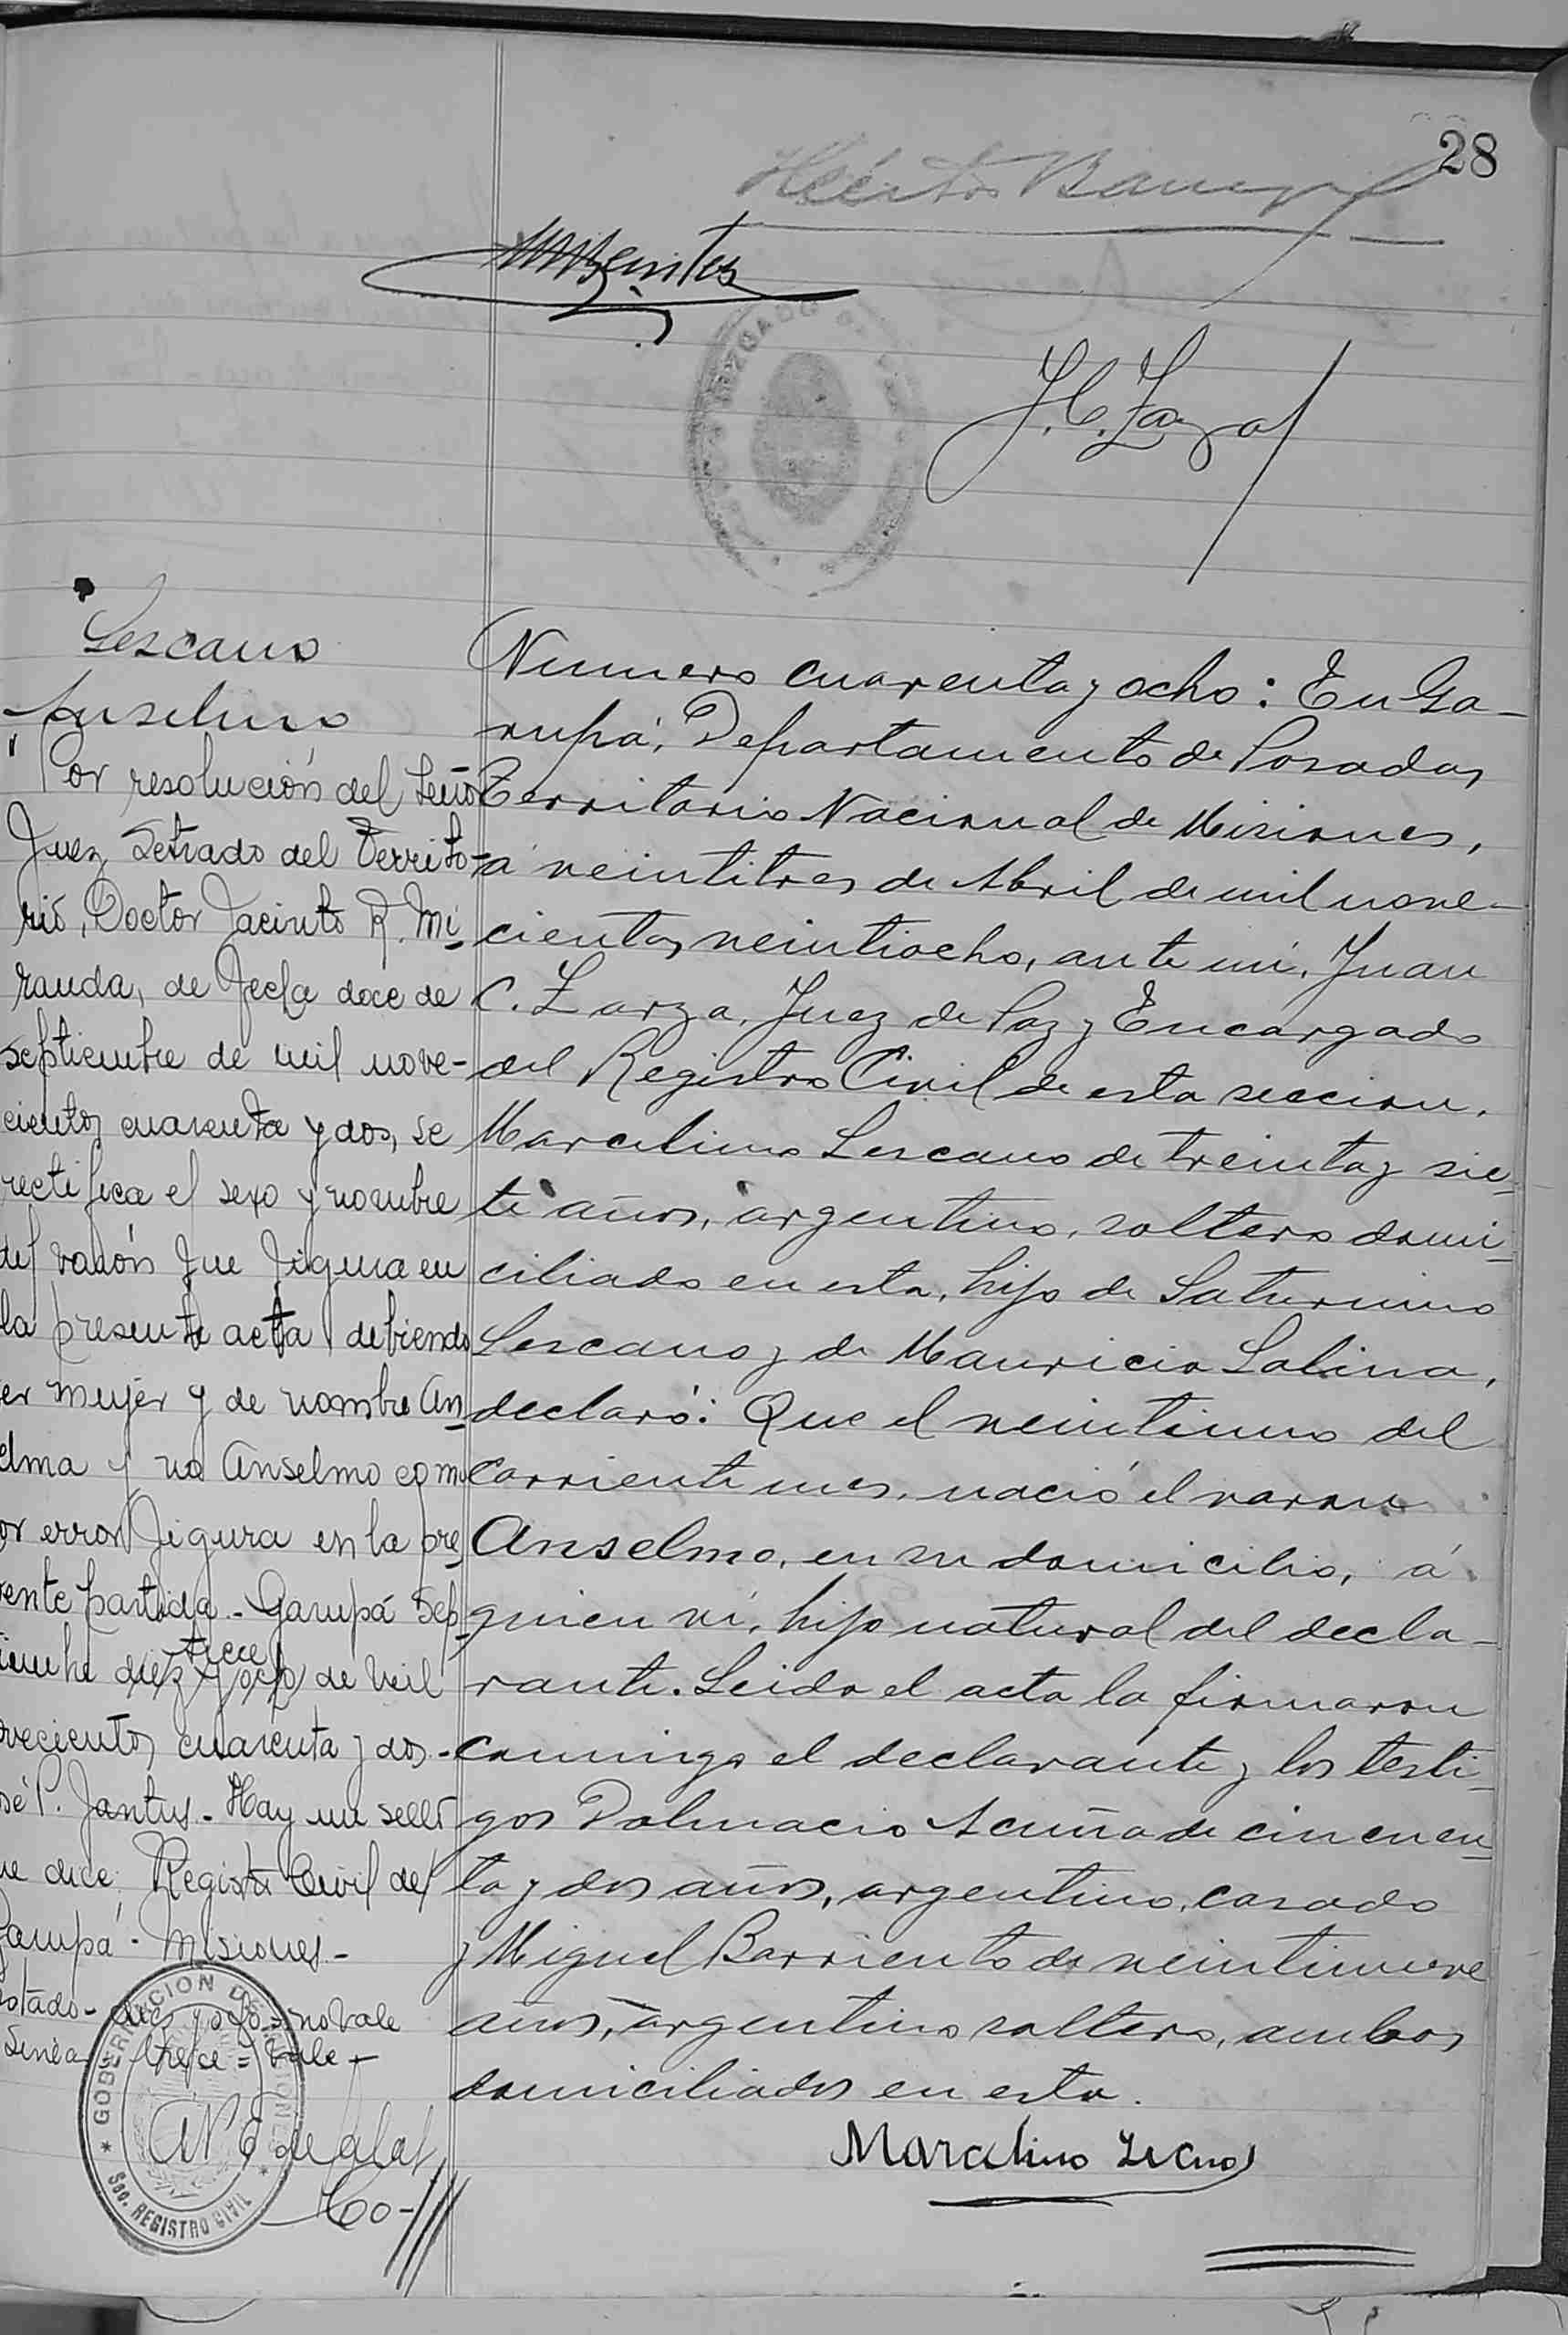 28
J. C. Zarza
Lescano
Anselmo
Por resolución del Seño
Juez Letrado del Territo-
rio, Doctor Jacinto R. Mi-
randa, de fecha doce de
septiembre de mil nove-
cientos cuarenta y dos, se
rectifica el sexo y nombre
del varón que figura en
la presente acta debiendo
er mujer y de nombre An-
elma y no Anselmo com
or error figura en la pre-
ente partida - Garupá Sep-
trece
iembre diez y ocho de mil
ovecientos cuarenta y dos -
sé P. Jantus - Hay un sello
ue dice: Registro Civil de
Garupá - Misiones -
estado - diez y ocho = no vale
Linea = trece = vale -
GOBERNACION DE MISIONES
Sec. REGISTRO CIVIL
Numero cuarenta y ocho: En Ga-
rupá, Departamento de Posadas
Territorio Nacional de Misiones,
á veintitres de Abril de mil nove-
cientos veintiocho, ante mi, Juan
C. Zarza, Juez de Paz y Encargado
del Registro Civil de esta seccion,
Marcelino Lescano de treinta y sie-
te años, argentino, soltero domi-
ciliado en esta, hijo de Saturnino
Lescano y de Mauricia Salina,
declaró: Que el veintiuno del
corriente mes, nació el varon
Anselmo, en su domicilio, á
quien vi, hijo natural del decla-
rante. Leida el acta la firmaron
conmigo el declarante y los testi-
gos Dalmacio Acuña de cincuen-
ta y dos años, argentino, casado
y Miguel Barriento de veintinueve
años, argentino soltero, ambos
domiciliados en esta.
Marcelino Lecano